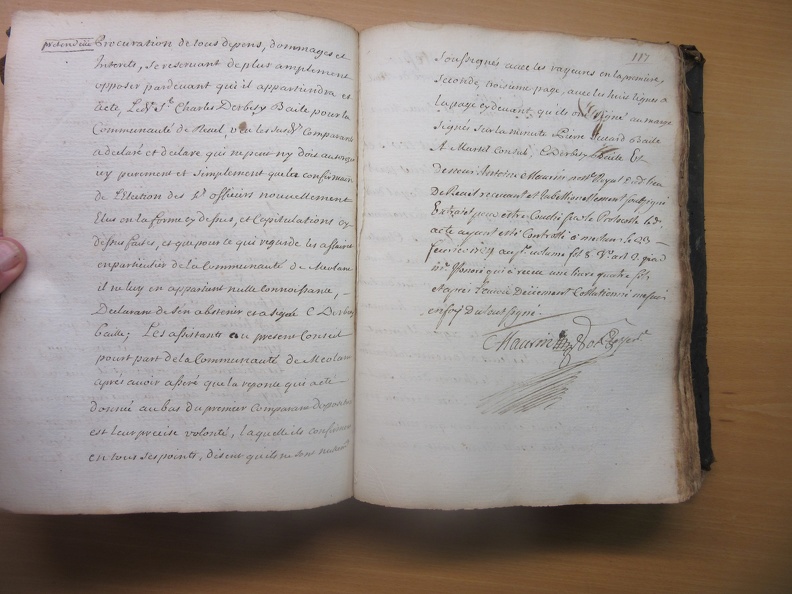 prétendüe Procuration de tous depens, dommages et
Interets, se reservant de plus amplement
opposer pardevant qui il appartiendra et
acte, Led. Sr. Charles Derbesy Baile pour la
Communauté de Reuel, vu les susd. Comparants
a declaré et declare qui ne peut ny dois autoriser
uy purement et simplement que la confirmaon
de l'Election des Srs officiers nouvellement
Elus en la forme cy dessus, et Capitulations cy
dessus faites, et que pour ce qui regarde les affaires
en particulier de la Communauté de Meolans
il ne luy en appartient nulle connoissance, –
Declarant de s'en abstenir et a signé C Derbesy
baille; Les assistants au present Conseil
pour et part de la Communauté de Meolans
après avoir asseré que la reponse qui a eté
donnée au bas du premier Comparant
est leur precise volonté, laquelle ils confirment
en tous ses points, disent qu'ils ne sont
117
soussignés avec les rayeures en la première,
seconde, troisieme page, avec les huit lignes a
la page cy devant, qu'ils ont signé au marge
signés sur la minute Pierre Baile
A Martel Consul, C Derbesy Baile Et
de nous Antoine Maurin nore Royal
De Reuel recevant et soussigné
Extrait pour etre Couché sur le Protocolle led.
acte ayant eté Controllé a le 23
fevrier fol 8 Vo art 2 par
mr qui a receu une livre quatre sols
et après Deüement Collationné
en foy Du soussigné.
Maurin